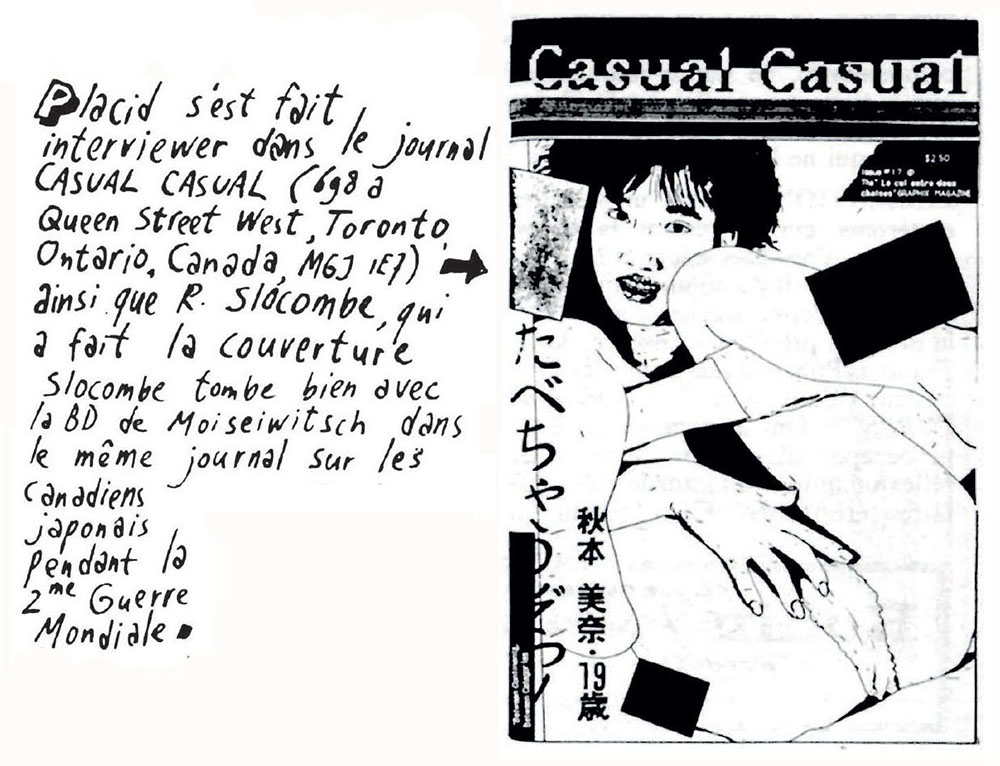 Placid s'est fait
interviewer dans le journal
CASUAL CASUAL (698 a
Queen Street West, Toronto,
Ontario, Canada, M6J 1E7)
ainsi que R. Slocombe, qui
a fait la couverture
Slocombe tombe bien avec
la BD de Moiseiwitsch dans
le même journal sur les
Canadiens
japonais
pendant la
2me Guerre
Mondiale.
Casual Casual
$2.50
Issue #17 @
The "Le cul entre deux
chaises" GRAPHIX MAGAZINE
たべちゃうゾっ!
秋本 美奈・19歳
"Between Continents,
Between Categories